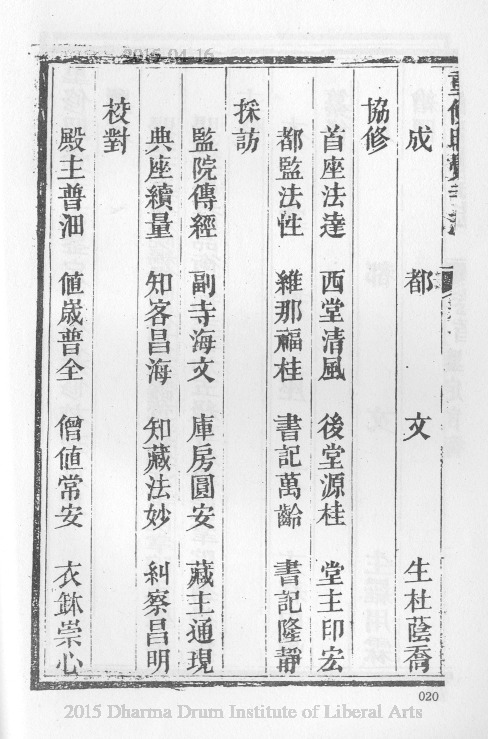 2015.04.16
重修昭覺寺志
成 都 文 生杜蔭喬
協修
首座法達 西堂清風 後堂源桂 堂主印宏
都監法性 維那福桂 書記萬齡 書記隆靜
採訪
監院傳經 副寺海文 庫房圓安 藏主通現
典座續量 知客昌海 知藏法妙 糾察昌明
校對
殿主普沺 值歲普全 僧值常安 衣鉢崇心
020
2015 Dharma Drum Institute of Liberal Arts